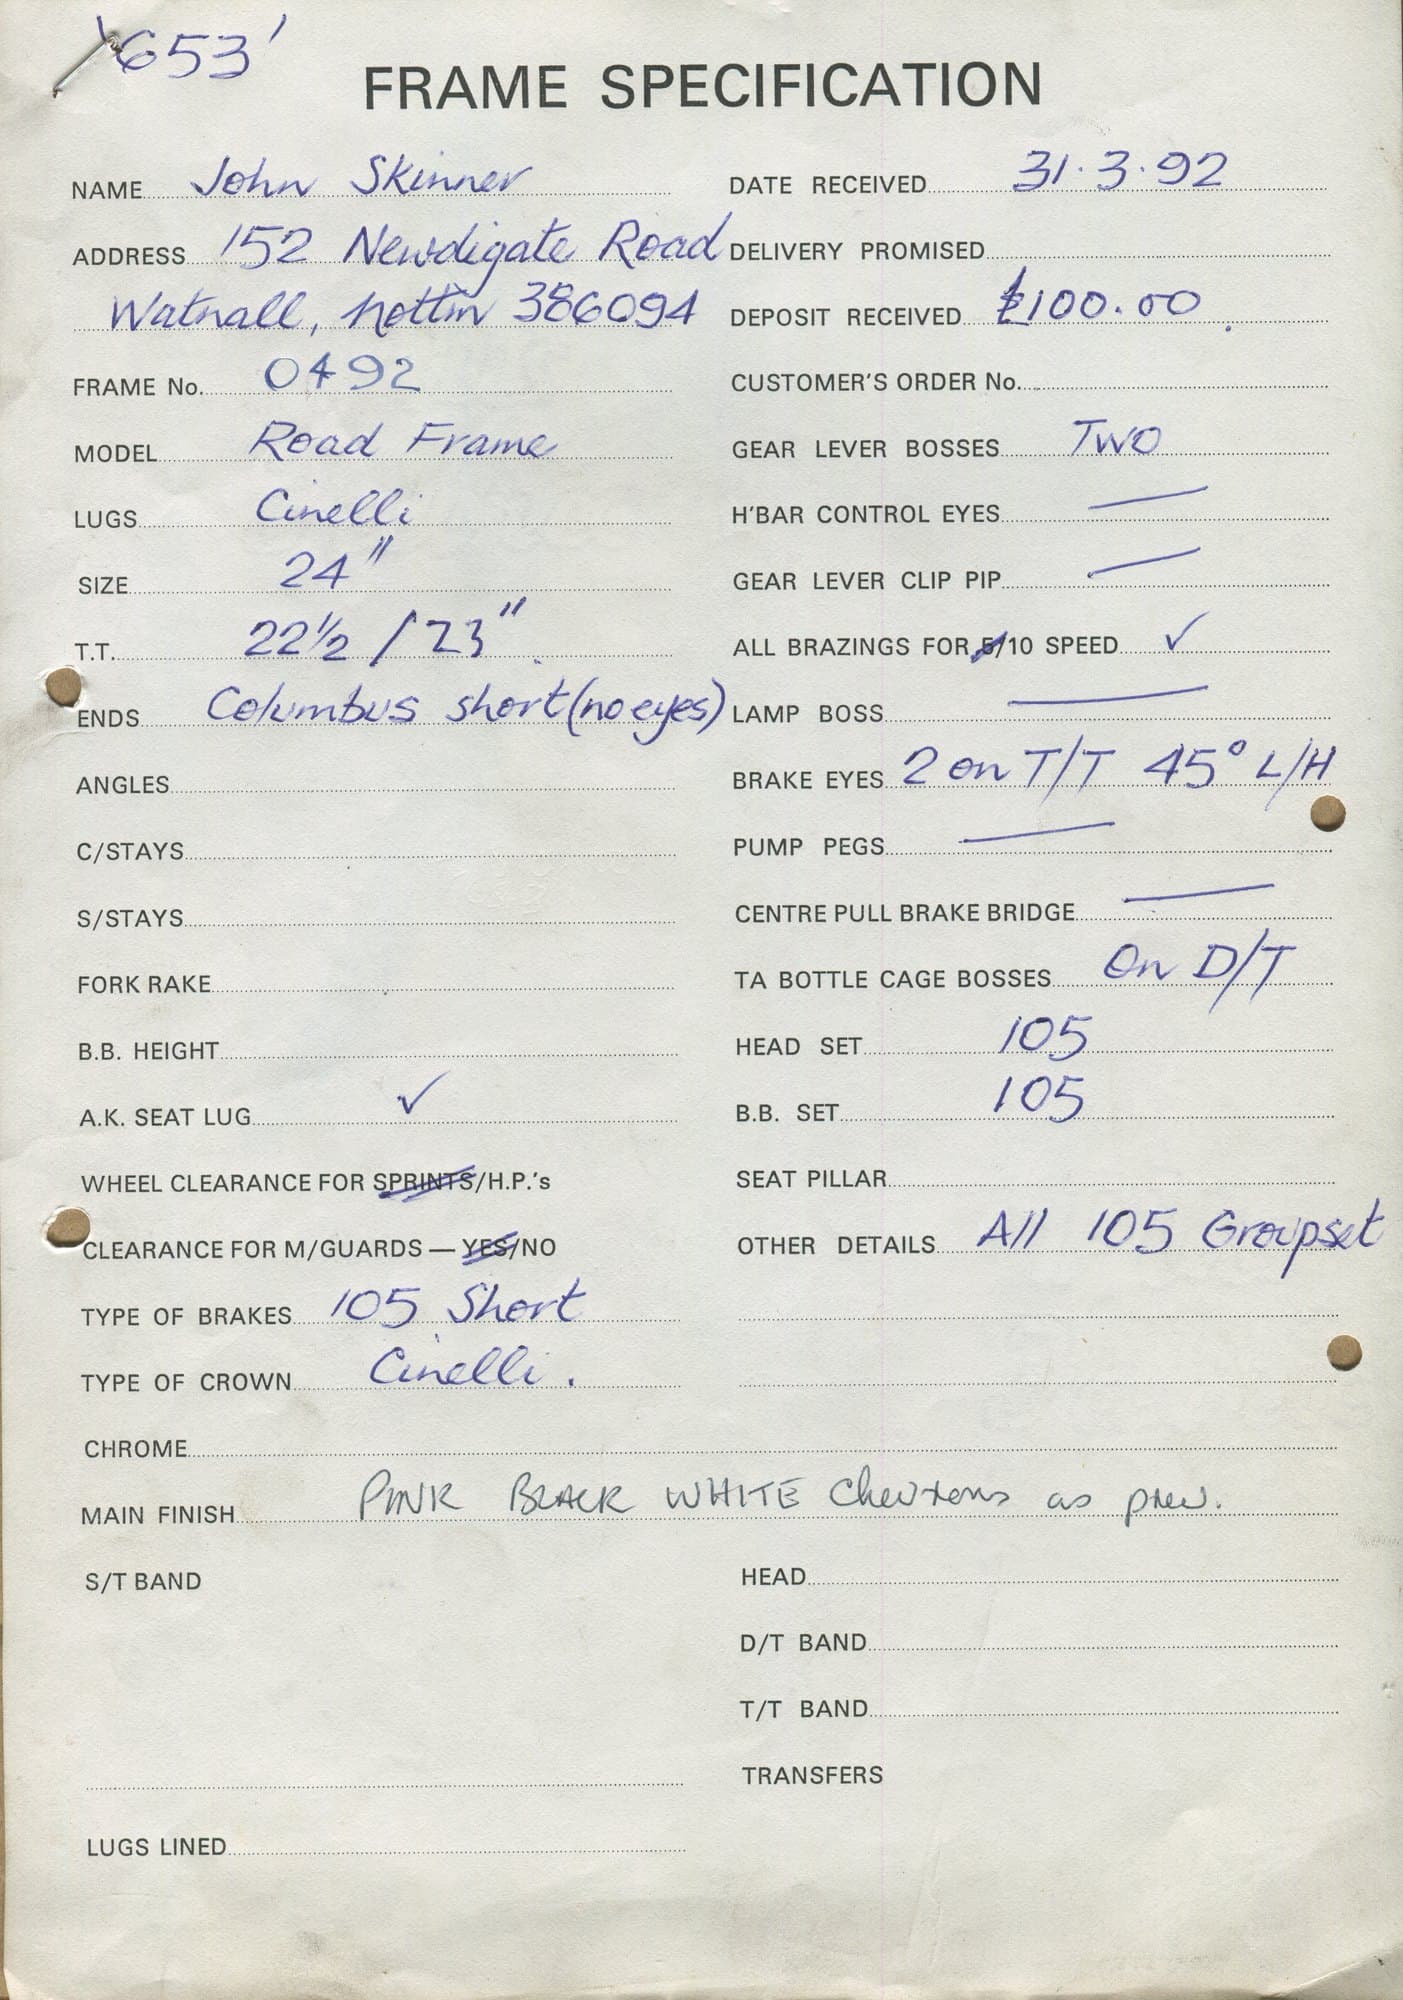 '653'
FRAME SPECIFICATION
NAME John Skinner
ADDRESS 152 Newdigate Road
Watnall, Nottm 386094
FRAME No. 0492
MODEL Road Frame
LUGS Cinelli
SIZE 24"
T.T. 22½ / 23"
ENDS Columbus short (no eyes)
ANGLES
C/STAYS
S/STAYS
FORK RAKE
B.B. HEIGHT
A.K. SEAT LUG ✓
WHEEL CLEARANCE FOR SPRINTS/H.P.'s
CLEARANCE FOR M/GUARDS — YES/NO
TYPE OF BRAKES 105 Short
TYPE OF CROWN Cinelli.
DATE RECEIVED 31.3.92
DELIVERY PROMISED
DEPOSIT RECEIVED £100.00
CUSTOMER'S ORDER No.
GEAR LEVER BOSSES TWO
H'BAR CONTROL EYES —
GEAR LEVER CLIP PIP —
ALL BRAZINGS FOR 5/10 SPEED ✓
LAMP BOSS —
BRAKE EYES 2 on T/T 45° L/H
PUMP PEGS —
CENTRE PULL BRAKE BRIDGE —
TA BOTTLE CAGE BOSSES On D/T
HEAD SET 105
B.B. SET 105
SEAT PILLAR
OTHER DETAILS All 105 Groupset
CHROME
MAIN FINISH PINK BLACK WHITE Chevrons as prev.
S/T BAND
LUGS LINED
HEAD
D/T BAND
T/T BAND
TRANSFERS